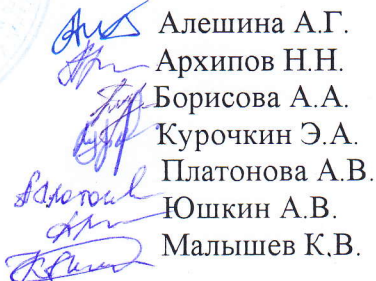 Алешина А.Г.
Архипов Н.Н.
Борисова А.А.
Курочкин Э.А.
Платонова А.В.
Юшкин А.В.
Малышев К.В.